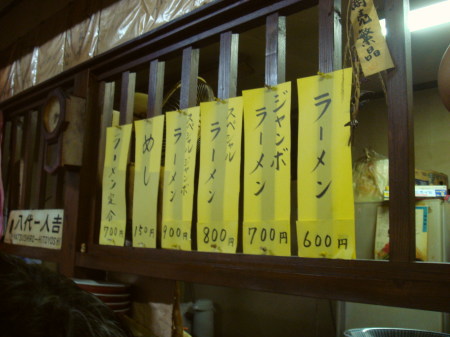 ラーメン
600円
ジャンボ
ラーメン
700円
スペシャル
ラーメン
800円
スペシャルジャンボ
ラーメン
900円
めし
150円
ラーメン定食
700円
八代ー人吉
商売繁盛